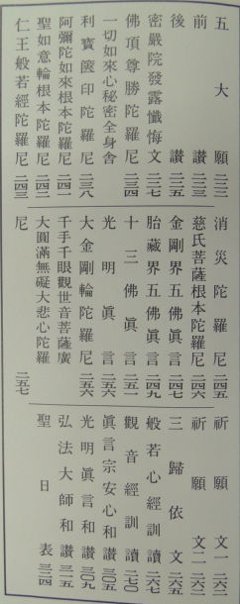 五大願 二二二
前讃 二二三
後讃 二二五
密嚴院發露懺悔文 二二七
佛頂尊勝陀羅尼 二三四
一切如來心秘密全身舍
利寶篋印陀羅尼 二三八
阿彌陀如來根本陀羅尼 二四一
聖如意輪根本陀羅尼 二四二
仁王般若經陀羅尼 二四三
消災陀羅尼 二四五
慈氏菩薩根本陀羅尼 二四六
金剛界五佛眞言 二四七
胎藏界五佛眞言 二四九
十三佛眞言 二五一
光明眞言 二五六
大金剛輪陀羅尼 二五六
千手千眼觀世音菩薩廣
大圓滿無礙大悲心陀羅
尼 二五七
祈願文一 二六二
祈願文二 二六三
三歸依文 二六五
般若心經訓讀 二六七
觀音經訓讀 二七〇
眞言宗安心和讃 三〇五
光明眞言和讃 三〇九
弘法大師和讃 三一五
聖日表 三二四